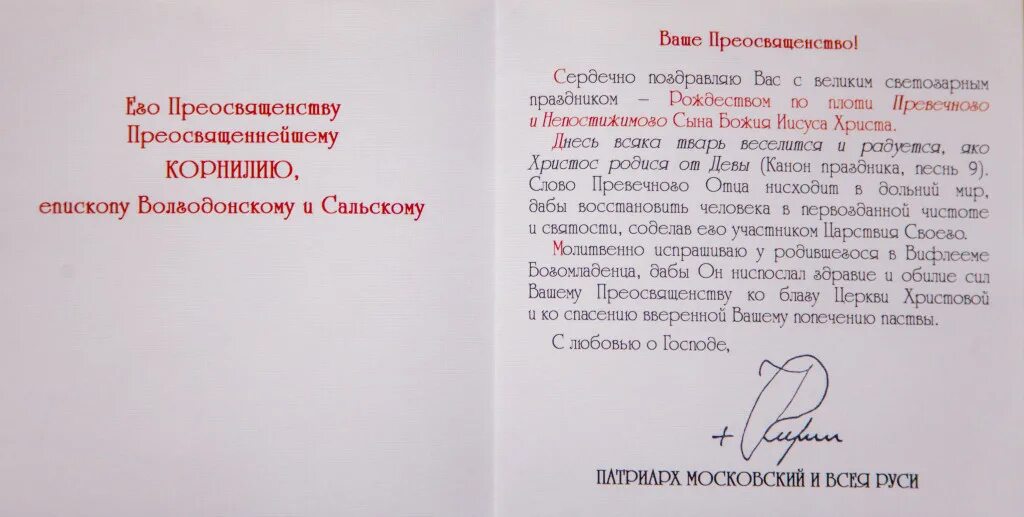 Его Преосвященству
Преосвященнейшему
КОРНИЛИЮ,
епископу Волгодонскому и Сальскому
Ваше Преосвященство!
Сердечно поздравляю Вас с великим светозарным
праздником – Рождеством по плоти Превечного
и Непостижимого Сына Божия Иисуса Христа.
Днесь всяка тварь веселится и радуется, яко
Христос родися от Девы (Канон праздника, песнь 9).
Слово Превечного Отца нисходит в дольний мир,
дабы восстановить человека в первозданной чистоте
и святости, соделав его участником Царствия Своего.
Молитвенно испрашиваю у родившегося в Вифлееме
Богомладенца, дабы Он ниспослал здравие и обилие сил
Вашему Преосвященству ко благу Церкви Христовой
и ко спасению вверенной Вашему попечению паствы.
С любовью о Господе,
+ Кирилл
ПАТРИАРХ МОСКОВСКИЙ И ВСЕЯ РУСИ